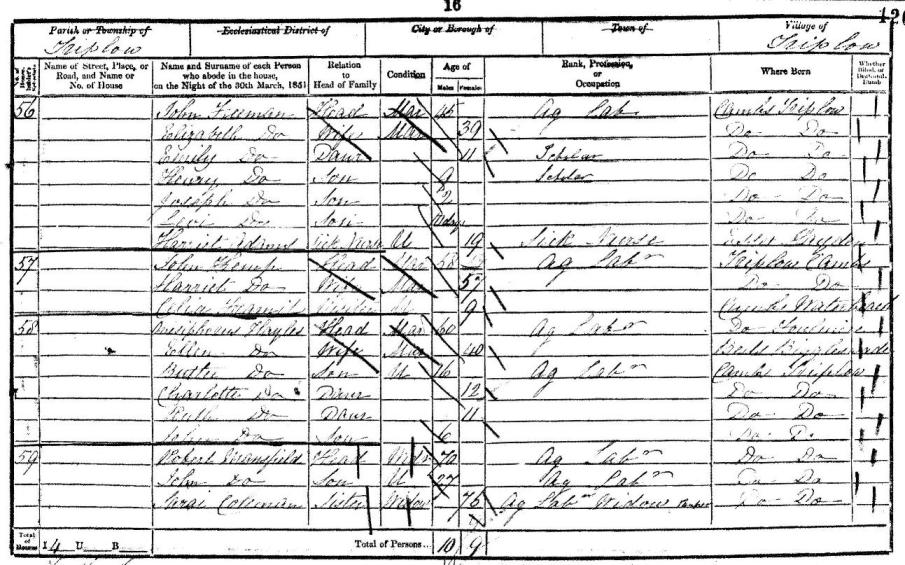 16
Parish or Township of Ecclesiastical District of City or Borough of Town of Village of
Triplow Triplow
Name of Street, Place, or Road, and Name or No. of House
Name and Surname of each Person who abode in the house, on the Night of the 30th March, 1851
Relation to Head of Family
Condition
Age of
Males Females
Rank, Profession, or Occupation
Where Born
Whether Blind, or Deaf-and-Dumb
56 John Freeman Head Mar 45 Ag Lab Cambs Triplow
Elizabeth Do Wife Mar 39 Do Do
Emily Do Daur 11 Scholar Do Do
Henry Do Son 9 Scholar Do Do
Joseph Do Son 2 Do Do
Levi Do Son Do Do
Harriet Adams Sick Nurse U 19 Sick Nurse Essex
57 John Kemp Head Mar 58 Ag Labr Triplow Cambs
Harriet Do Wife Mar 57 Do Do
9 Cambs
58 Hayles Head Mar 60 Ag Labr Do
Ellen Do Wife Mar 40
Do Son U 16 Ag Labr Cambs Triplow
Charlotte Do Daur 12 Do Do
Ruth Do Daur 11 Do Do
John Do Son 6 Do Do
59 Robert Mansfield Head Widr 70 Ag Labr Do Do
John Do Son U 27 Ag Labr Do Do
Coleman Sister Widow 76 Ag Labr Widow Do Do
Total of Houses I 4 U B Total of Persons... 10 9